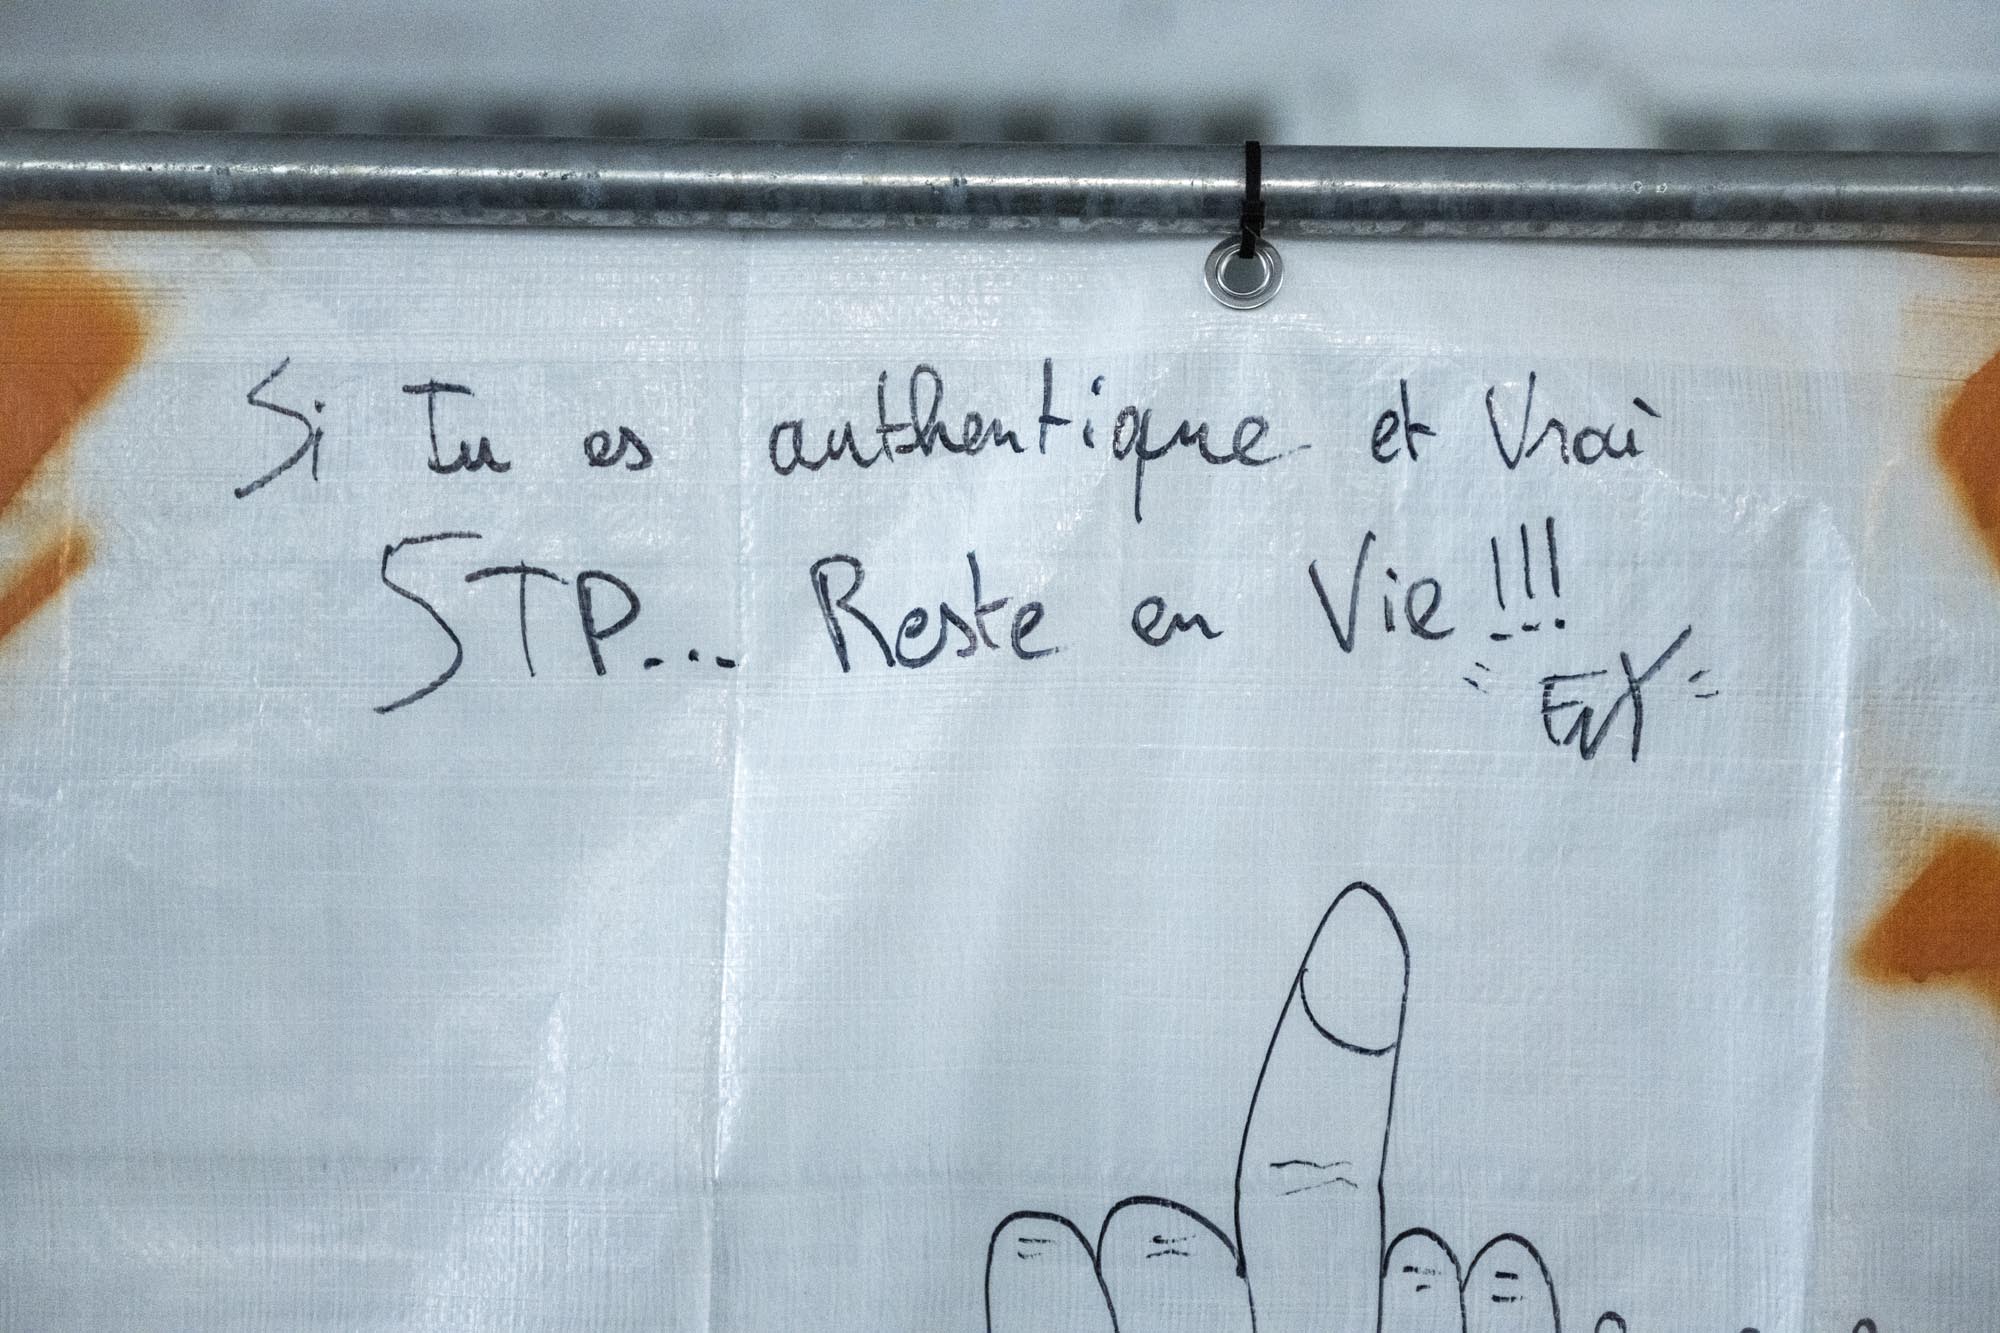 Si Tu es authentique et Vrai
STP... Reste en Vie!!!